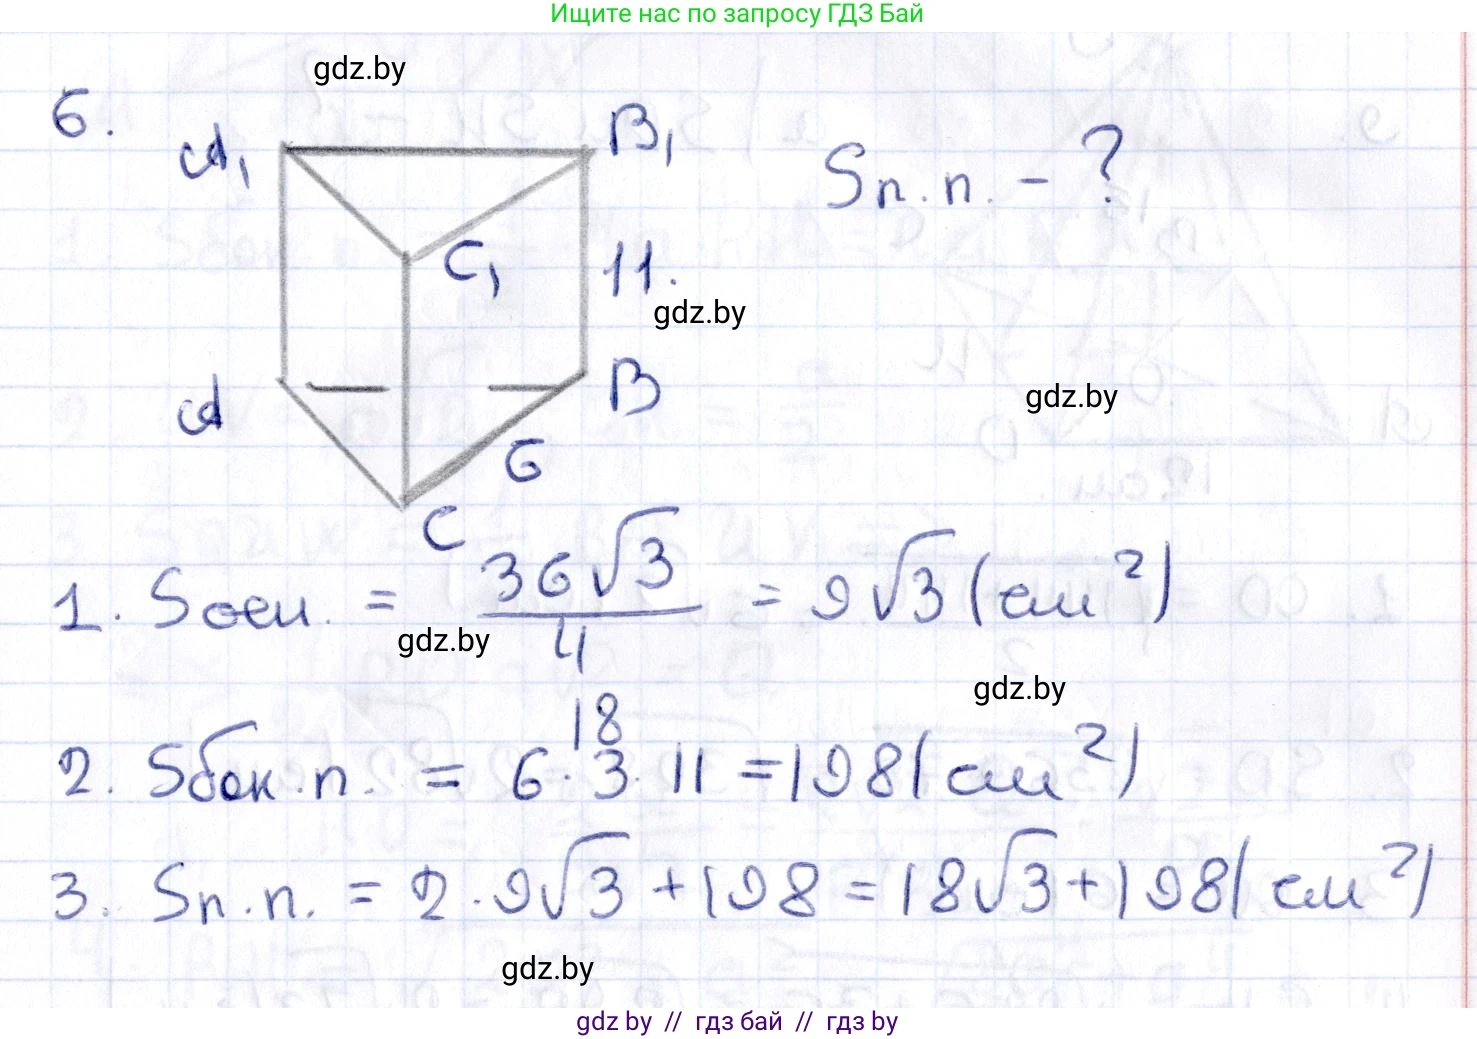 Ищите нас по запросу ГДЗ Бай
gdz.by
6.
A₁
B₁
Sп.п. - ?
C₁
11.
gdz.by
gdz.by
A
B
6
C
1. Sосн. = 36√3/4 = 9√3 (см²)
gdz.by
gdz.by
18
2. Sбок.п. = 6·3·11 = 198 (см²)
3. Sп.п. = 2·9√3 + 198 = 18√3 + 198 (см²)
gdz.by
gdz by // гдз бай // гдз by